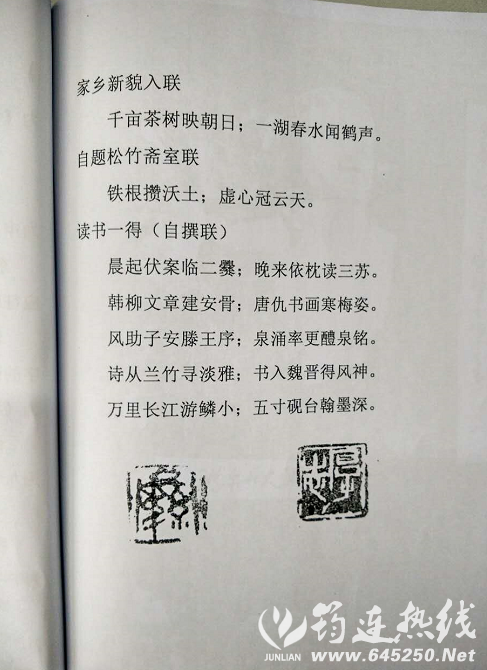 家乡新貌入联
千亩茶树映朝日；一湖春水闻鹤声。
自题松竹斋室联
铁根攒沃土；虚心冠云天。
读书一得（自撰联）
晨起伏案临二爨；晚来依枕读三苏。
韩柳文章建安骨；唐仇书画寒梅姿。
风助子安滕王序；泉涌率更醴泉铭。
诗从兰竹寻淡雅；书入魏晋得风神。
万里长江游鳞小；五寸砚台翰墨深。
筠连热线
JUNLIAN www.645250.Net